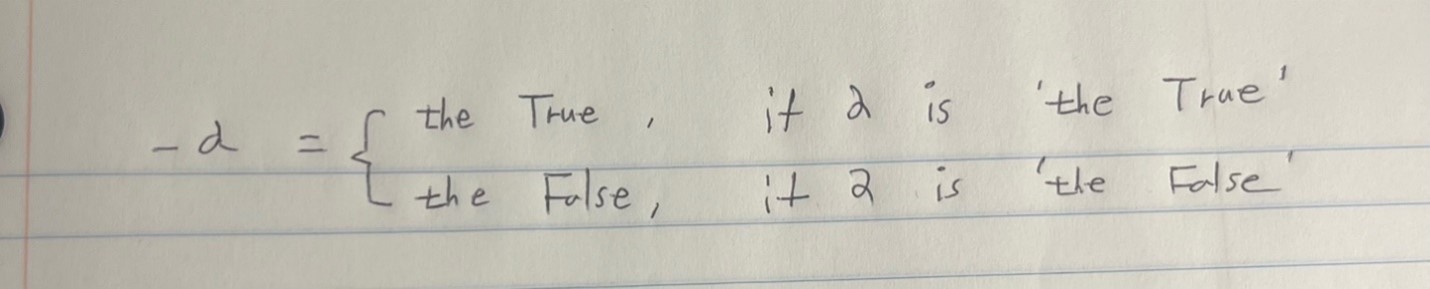 - ∂ = { the True , if ∂ is 'the True'
the False, if ∂ is 'the False'